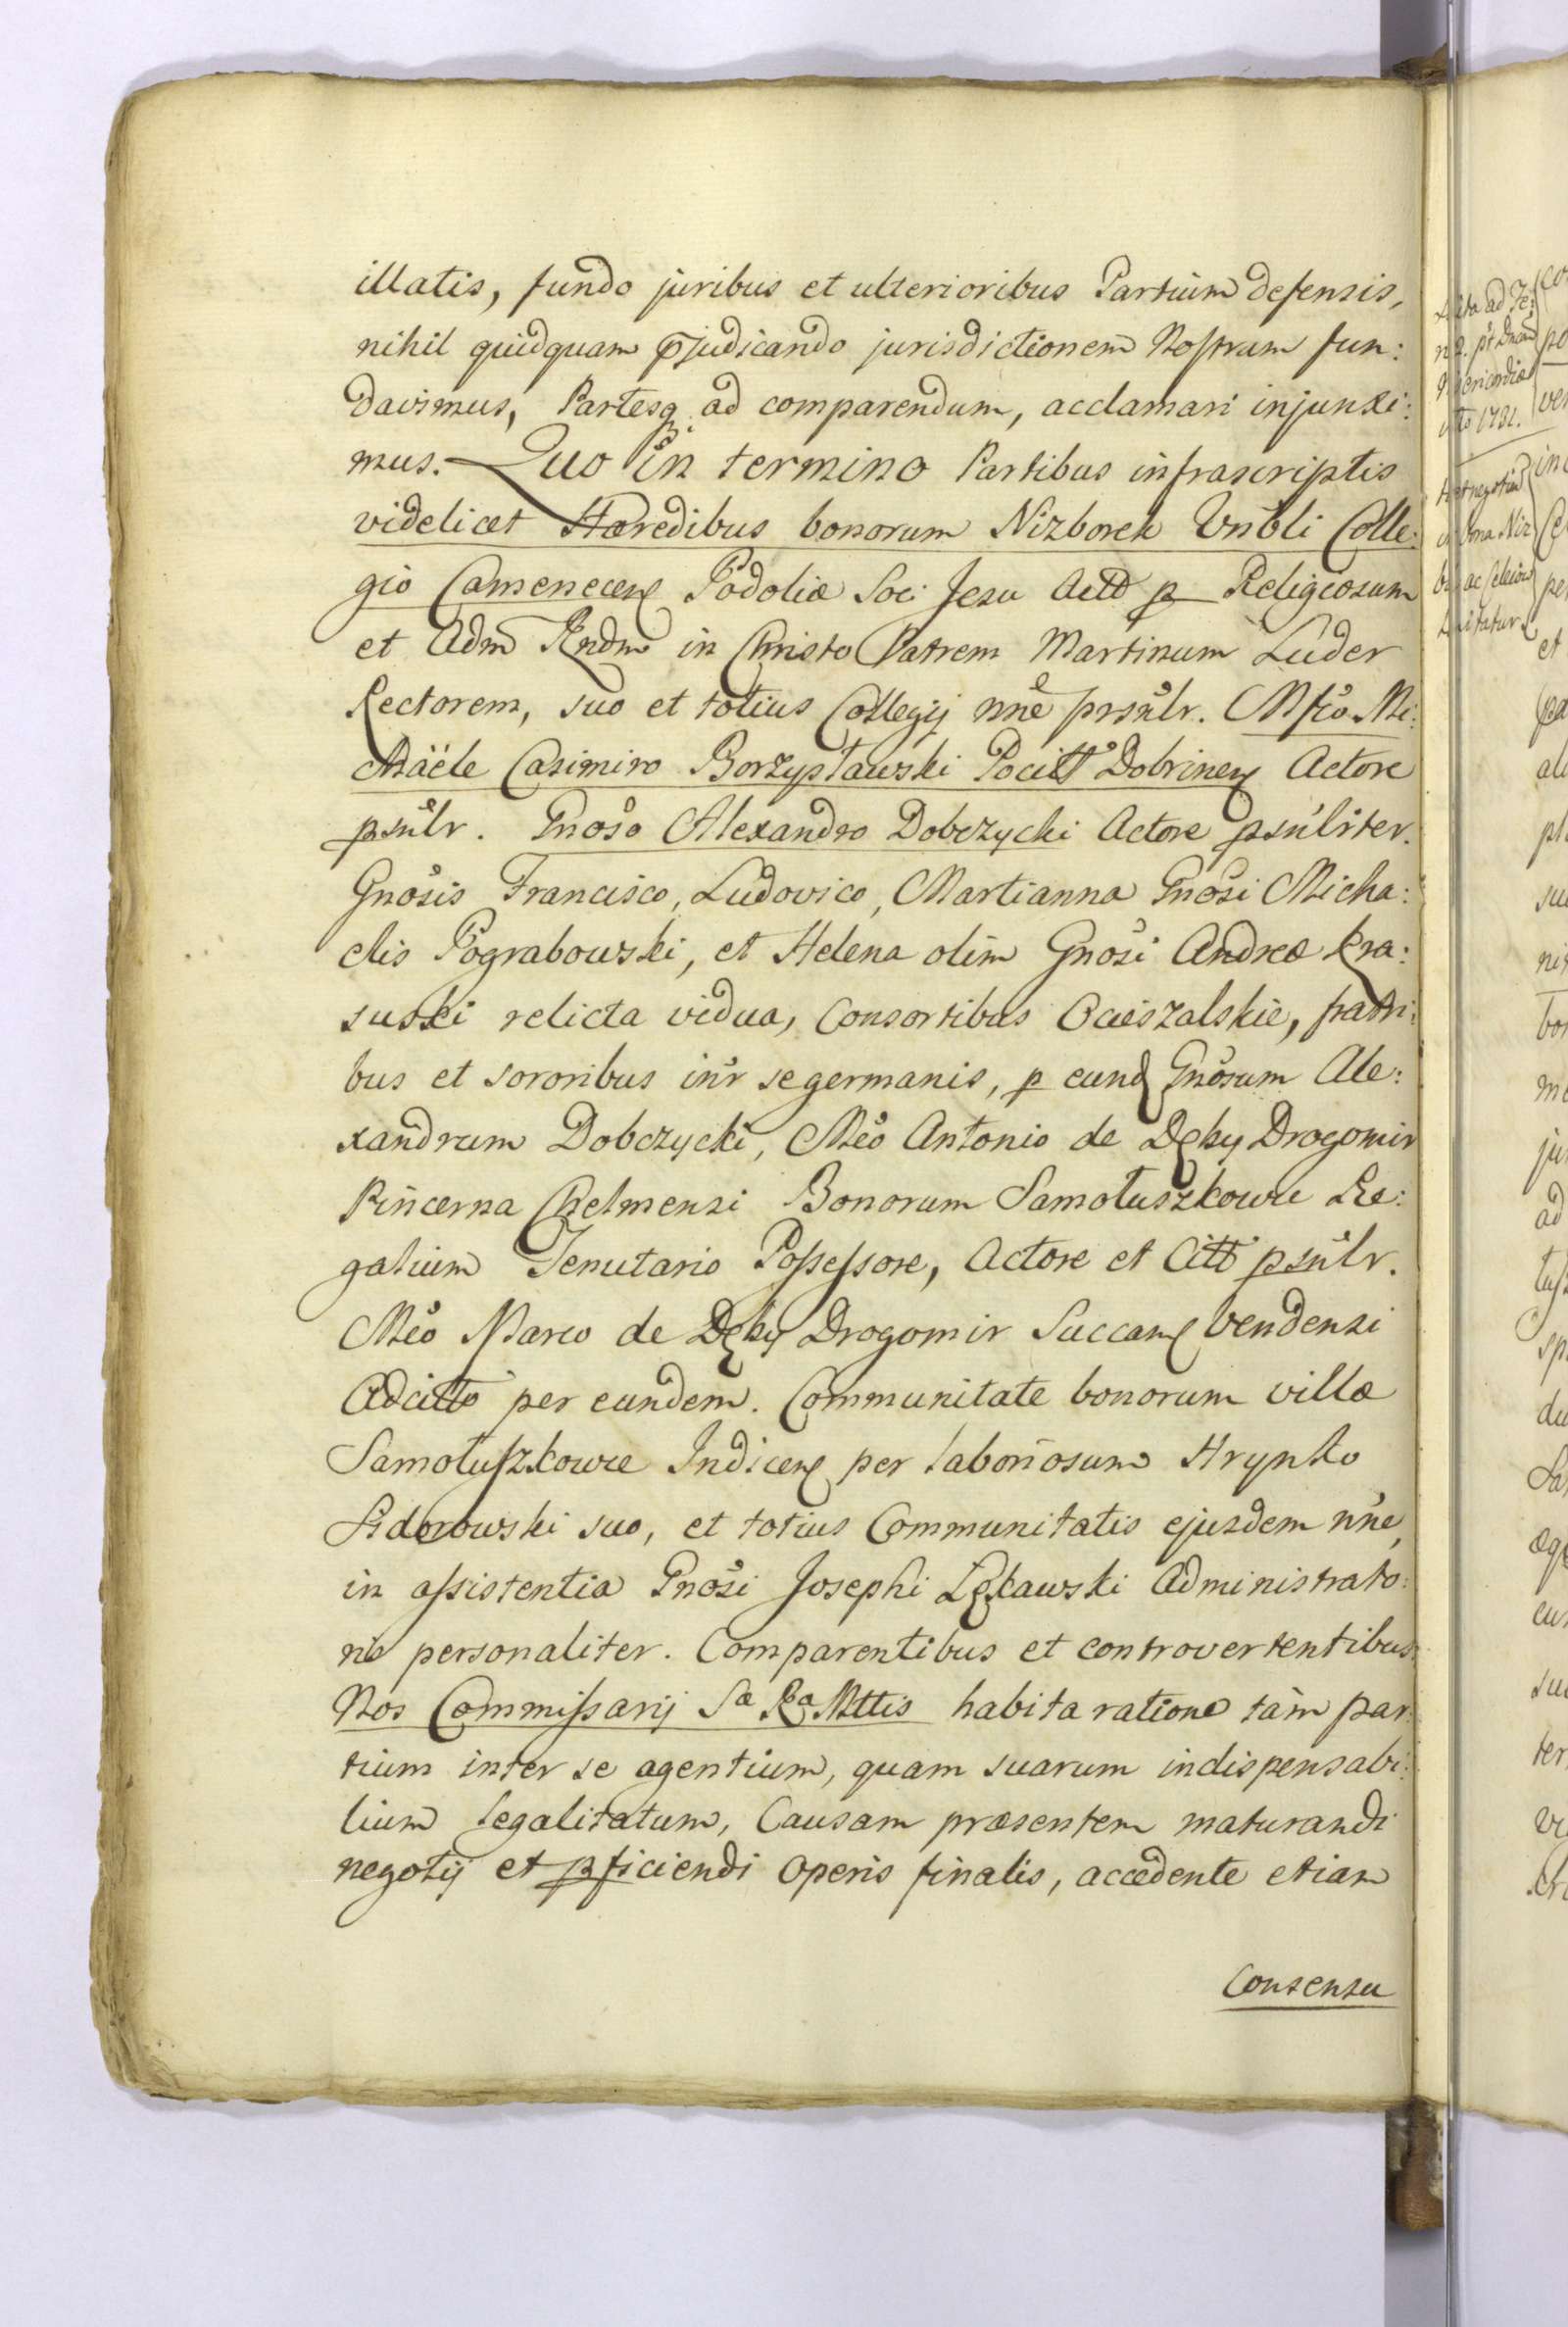 illatis, fundo juribus et ulterioribus Partium defensis,
nihil quidquam p̃judicando jurisdictionem Nostram fun:
davimus, Partesq ad comparendum, acclamari injunxi:
mus. Quo in termino Partibus infrascriptis
videlicet Hæredibus bonorum Nizborek Vn̄bli Colle:
gio Camenecen Podoliæ Soc: Jesu Actō p Religiosum
et Adm Rndm in Christo Patrem Martinum Luder
Rectorem, suo et totius Collegij nñe prsñlr. Mfcō Mi:
chaële Casimiro Borzysławski Pocitt Dobrinen Actore
psñlr. Gnoso Alexandro Dobczycki Actore psñliter.
Gnosis Francisco, Ludovico, Martianna Gnosi Micha:
elis Pograbowski, et Helena olim Gnosi Andreæ Kra:
suski relicta vidua, Consortibus Ocieszalskie, fratri:
bus et sororibus inr̃ se germanis, p eund Gnosum Ale:
xandrum Dobczycki, Mcō Antonio de Dęby Drogomir
Pincerna Chelmensi Bonorum Samołuszkowce Re:
galium Tenutario Possessore, Actore et Citt psñlr.
Mcō Marco de Dęby Drogomir Succam Vendensi
Adcitto per eundem. Communitate bonorum villæ
Samołuszkowce Indicen per laboriosum Hrynko
Sidorowski suo, et totius Communitatis ejusdem nñe,
in assistentia Gnosi Josephi Lękawski Administrato:
ris personaliter. Comparentibus et controvertentibus
Nos Commissarij Sæ Ræ Mttis habita ratione tàm par:
tium inter se agentium, quam suarum indispensabi:
lium legalitatum, Causam præsentem maturandi
negotij et pficiendi operis finalis, accedente etiam
Consensu